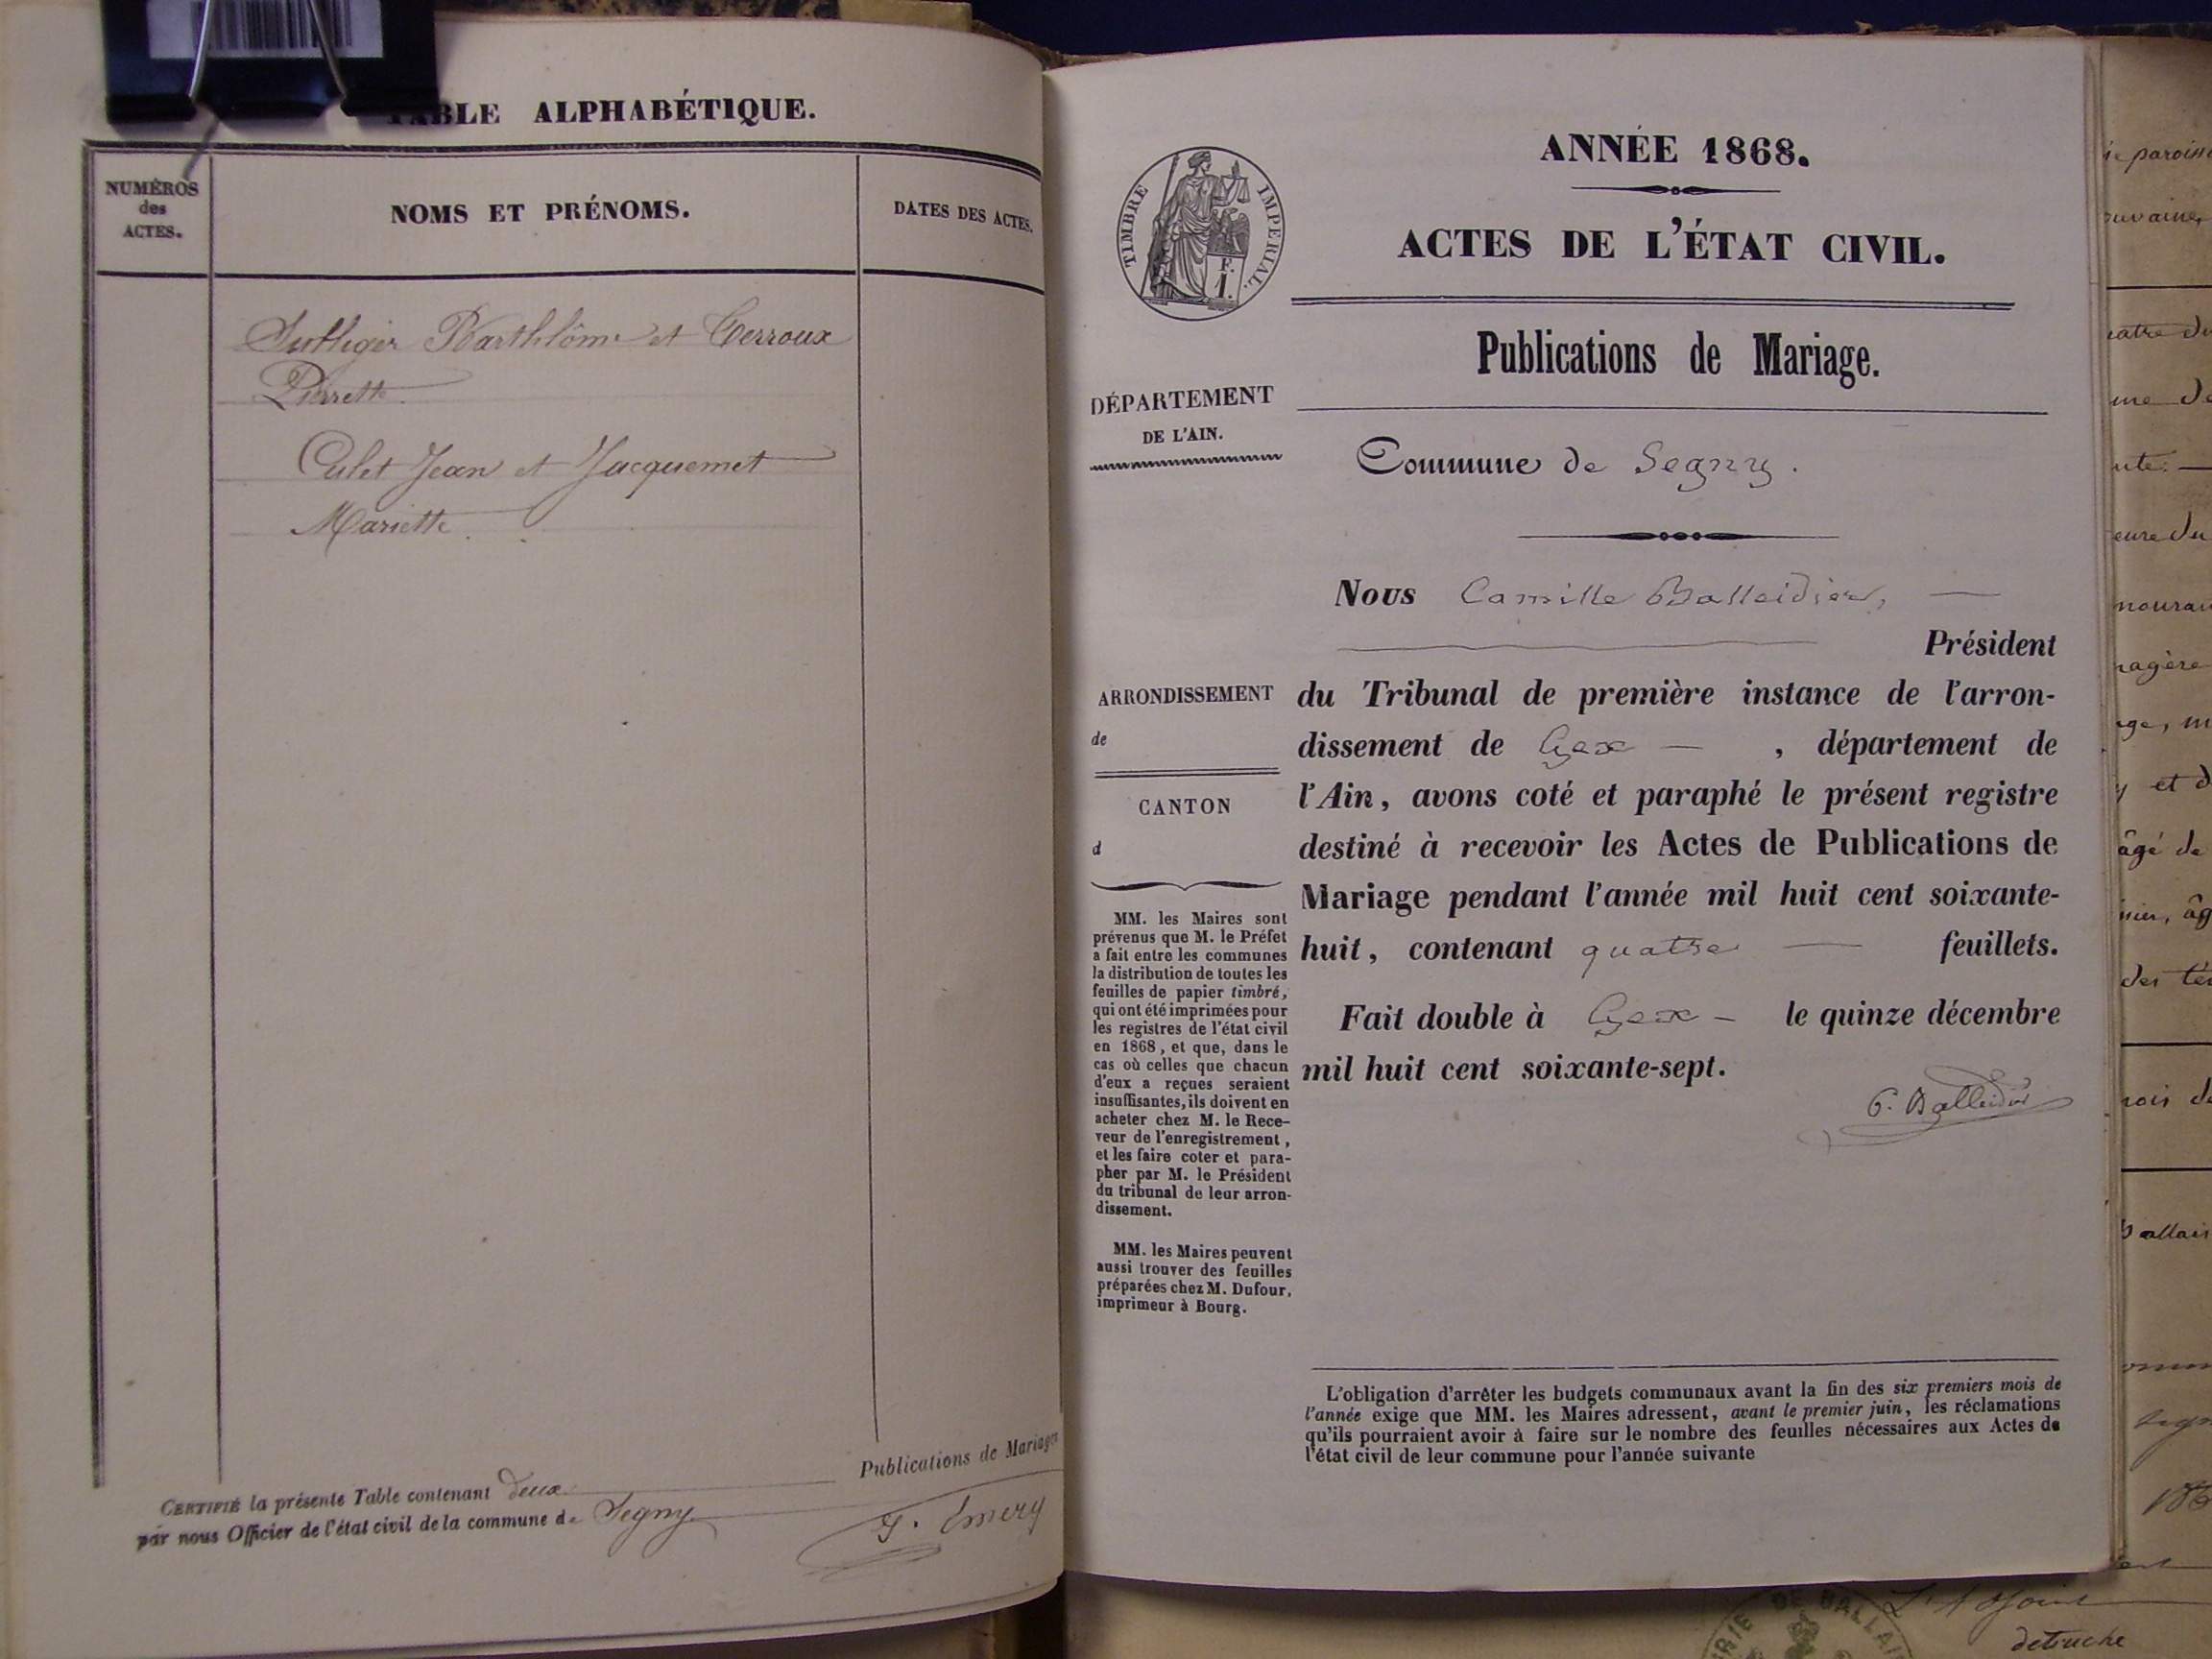 TABLE ALPHABÉTIQUE.
NUMÉROS
des
ACTES.
NOMS ET PRÉNOMS.
DATES DES ACTES.
et Perroux
Pierrette
Culet Jean et Jacquemet
Mariette
CERTIFIÉ la présente Table contenant deux Publications de Mariages
par nous Officier de l'état civil de la commune de Segny
F. Emery
TIMBRE IMPERIAL.
F.
1.
DÉPARTEMENT
DE L'AIN.
ARRONDISSEMENT
de
CANTON
d
MM. les Maires sont
prévenus que M. le Préfet
a fait entre les communes
la distribution de toutes les
feuilles de papier timbré,
qui ont été imprimées pour
les registres de l'état civil
en 1868, et que, dans le
cas où celles que chacun
d'eux a reçues seraient
insuffisantes, ils doivent en
acheter chez M. le Rece-
veur de l'enregistrement,
et les faire coter et para-
pher par M. le Président
du tribunal de leur arron-
dissement.
MM. les Maires peuvent
aussi trouver des feuilles
préparées chez M. Dufour,
imprimeur à Bourg.
ANNÉE 1868.
ACTES DE L'ÉTAT CIVIL.
Publications de Mariage.
Commune de Segny.
Nous Camille Balleidier,
Président
du Tribunal de première instance de l'arron-
dissement de Gex — , département de
l'Ain, avons coté et paraphé le présent registre
destiné à recevoir les Actes de Publications de
Mariage pendant l'année mil huit cent soixante-
huit, contenant quatre — feuillets.
Fait double à Gex — le quinze décembre
mil huit cent soixante-sept.
C. Balleidier
L'obligation d'arrêter les budgets communaux avant la fin des six premiers mois de
l'année exige que MM. les Maires adressent, avant le premier juin, les réclamations
qu'ils pourraient avoir à faire sur le nombre des feuilles nécessaires aux Actes de
l'état civil de leur commune pour l'année suivante